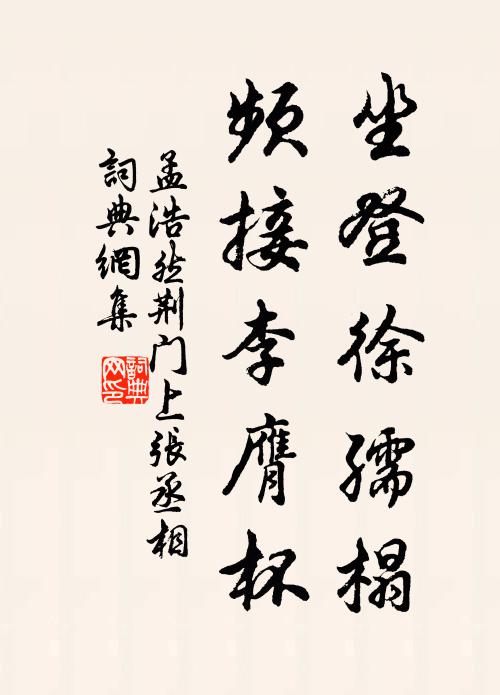 坐登徐孺榻
频接李膺杯
孟浩然荆门上張丞相
詞典網集
詞典网印